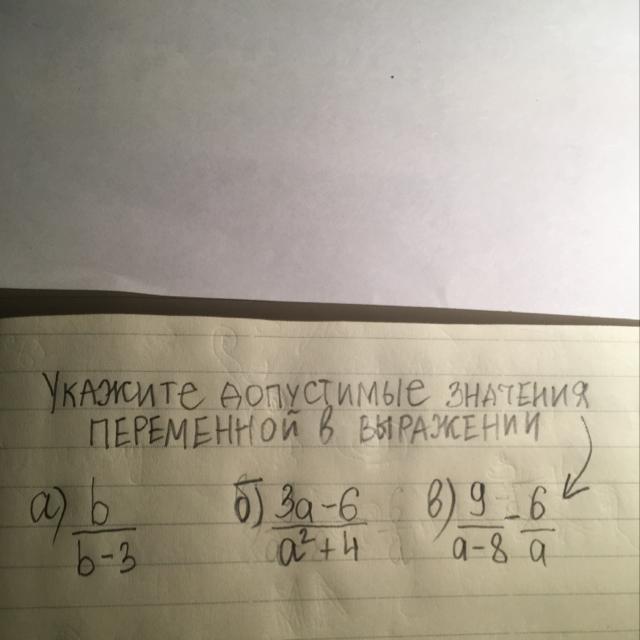 Укажите допустимые значения
переменной в выражении
а) b/(b-3) б) (3a-6)/(a²+4) в) 9/(a-8) - 6/a